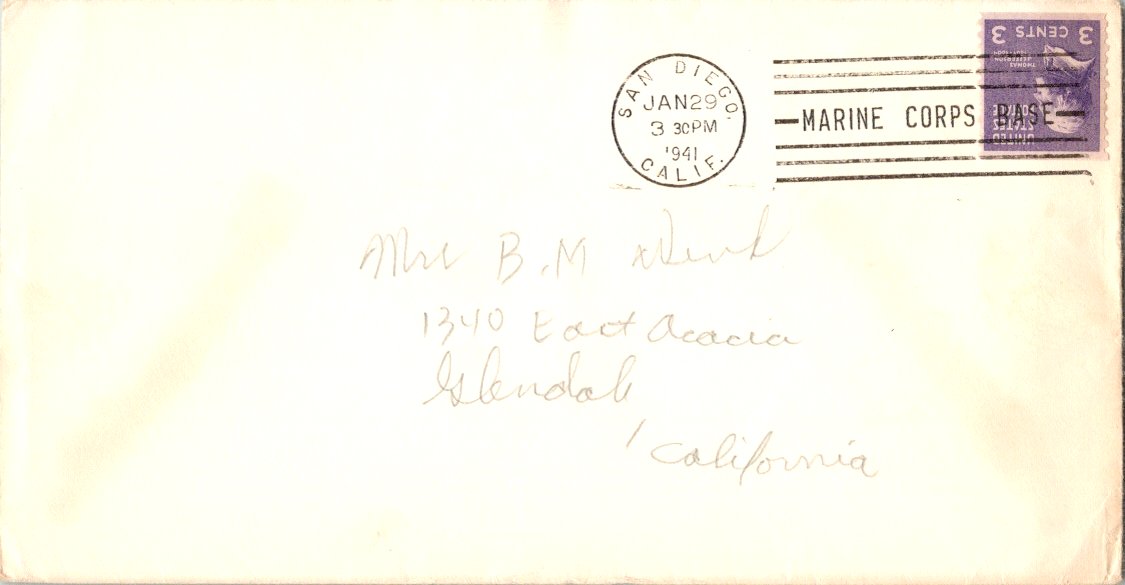 SAN DIEGO,
JAN 29
3 30PM
1941
CALIF.
MARINE CORPS BASE
UNITED
STATES
POSTAGE
THOMAS
JEFFERSON
3 CENTS 3
Mrs B.M
1340 East Acacia
Glendale
, California